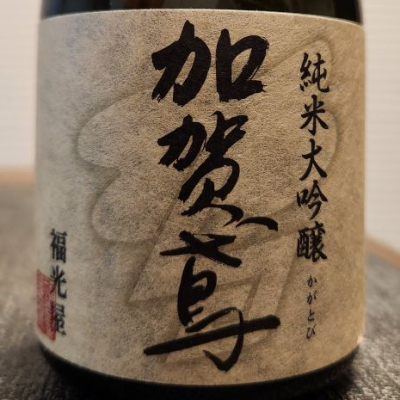 純米大吟醸
かがとび
加賀鳶
福光屋